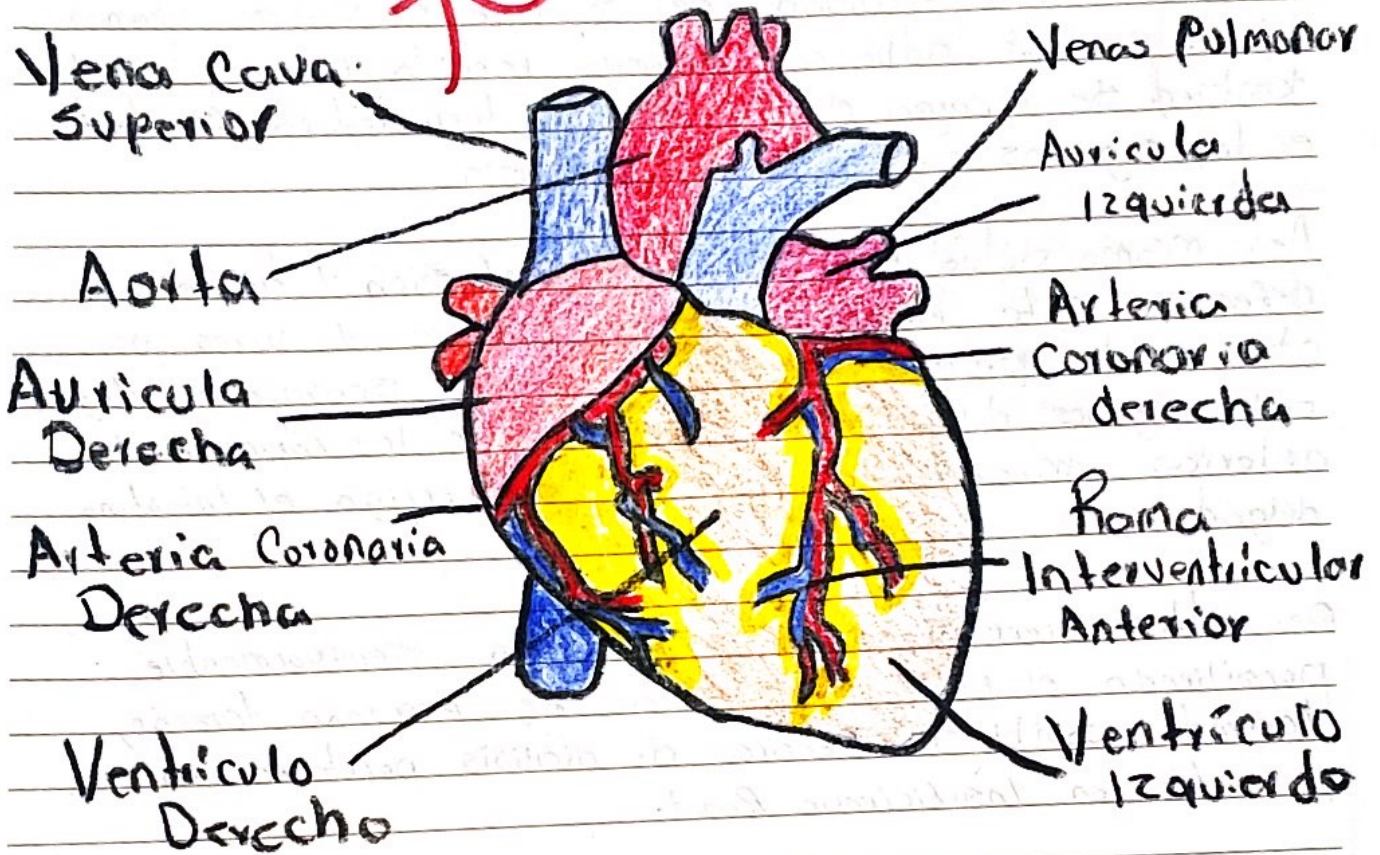 Vena Cava
Superior
Aorta
Auricula
Derecha
Arteria Coronaria
Derecha
Ventrículo
Derecho
Venas Pulmonar
Auricula
Izquierda
Arteria
Coronaria
derecha
Rama
Interventricular
Anterior
Ventrículo
Izquierdo